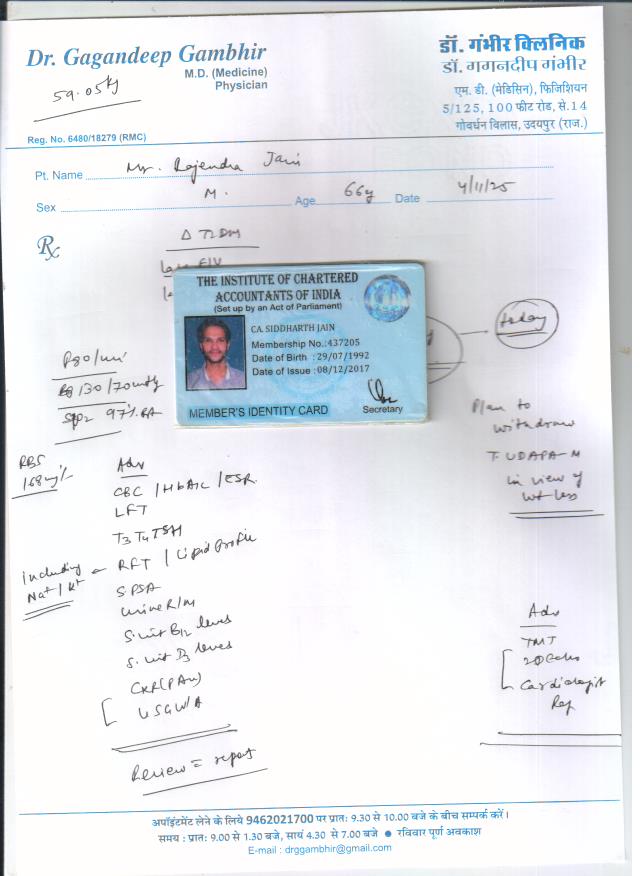 Dr. Gagandeep Gambhir
M.D. (Medicine)
Physician
59.05kg
Reg. No. 6480/18279 (RMC)
डॉ. गंभीर क्लिनिक
डॉ. गगनदीप गंभीर
एम. डी. (मेडिसिन), फिजिशियन
5/125, 100 फीट रोड, से.14
गोवर्धन विलास, उदयपुर (राज.)
Pt. Name Mr. Rajendra Jain
Sex M. Age 66y Date 4/11/25
Rx
Δ T2DM
THE INSTITUTE OF CHARTERED
ACCOUNTANTS OF INDIA
(Set up by an Act of Parliament)
CA. SIDDHARTH JAIN
Membership No.:437205
Date of Birth : 29/07/1992
Date of Issue : 08/12/2017
Secretary
MEMBER'S IDENTITY CARD
today
P80/min
Bp 130/70mmHg
SpO2 97% RA
RBS
168mg%
Adv
CBC / HbA1C / ESR
LFT
T3 T4 TSH
RFT / Lipid Profile
including
Na+ / K+
S PSA
Urine R/M
S. vit B12 levels
S. vit D3 levels
CXR (PA view)
USG W/A
Review = report
Plan to
withdraw
T. UDAPA-M
in view of
wt loss
Adv
TMT
2D Echo
Cardiologist
Ref
अपॉइंटमेंट लेने के लिये 9462021700 पर प्रातः 9.30 से 10.00 बजे के बीच सम्पर्क करें।
समय : प्रातः 9.00 से 1.30 बजे, सायं 4.30 से 7.00 बजे ● रविवार पूर्ण अवकाश
E-mail : drggambhir@gmail.com